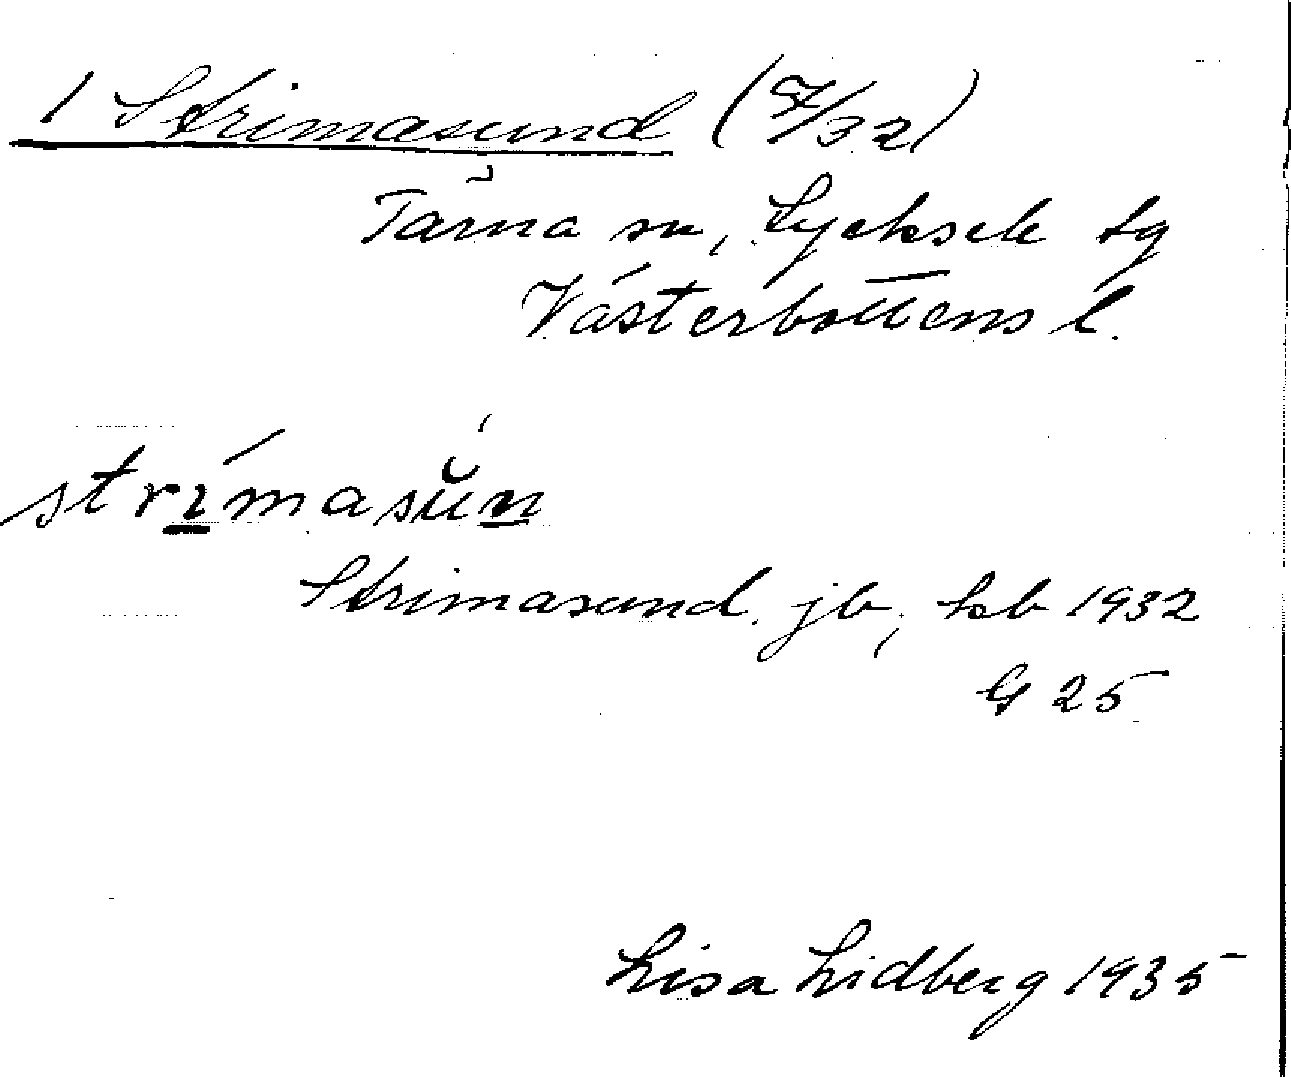 1 Strimasund (7/32)
Tärna sn, Lycksele lg
Västerbottens l.
strı́masŭn
Strimasund jb, kb 1932
G 25
Lisa Lidberg 1935